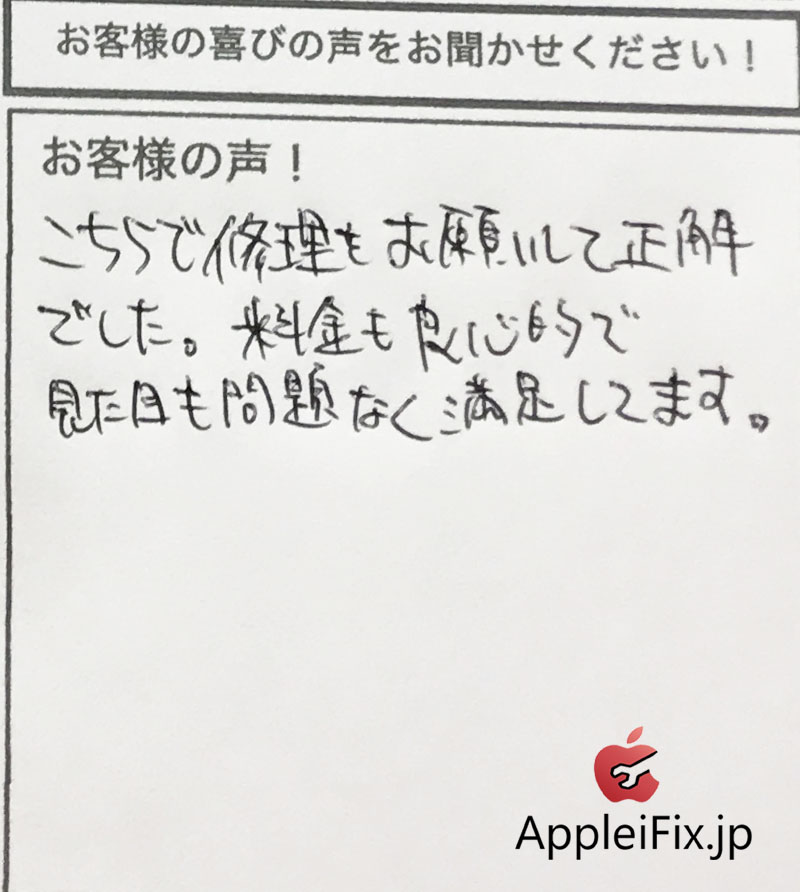 お客様の喜びの声をお聞かせください！
お客様の声！
こちらで修理をお願いして正解
でした。料金も良心的で
見た目も問題なく満足してます。
AppleiFix.jp